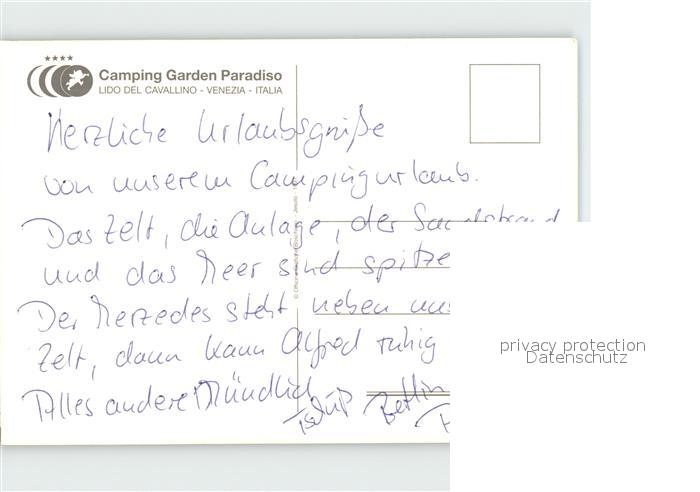 Camping Garden Paradiso
LIDO DEL CAVALLINO - VENEZIA - ITALIA
Herzliche Urlaubsgrüße
von unserem Campingurlaub.
Das Zelt, die Anlage, der Sandstrand
und das Meer sind spitze
Der Merzedes steht neben uns
Zelt, dann kann Alfred ruhig
Alles andere Mündlich
Tschüß Berlin
privacy protection
Datenschutz